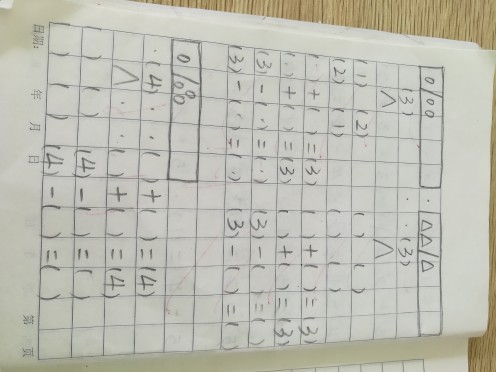 0/00 △△/△
(3) (3)
∧ ∧
(1) (2) ( ) ( )
(2) (1) ( ) ( )
(·)+( )=(3) ( )+( )=(3)
(·)+( )=(3) ( )+( )=(3)
(3)-(·)=(·) (3)-( )=( )
(3)-(·)=(·) (3)-( )=( )
0/000
(4) ( )+( )=(4)
∧ ( )+( )=(4)
( ) ( ) (4)-( )=( )
( ) ( ) (4)-( )=( )
日期: 年 月 日 第 页